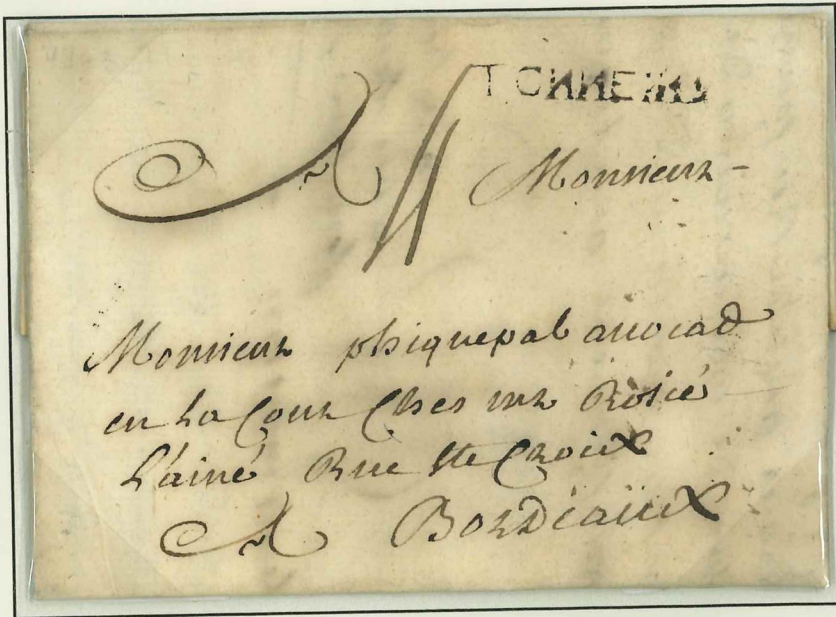 TONNEINS
A
Monsieur
Monsieur phiquepal avocad
en La Cour Ches mr Rosié
L'ainé Rue Ste Croix
A Bordeaux